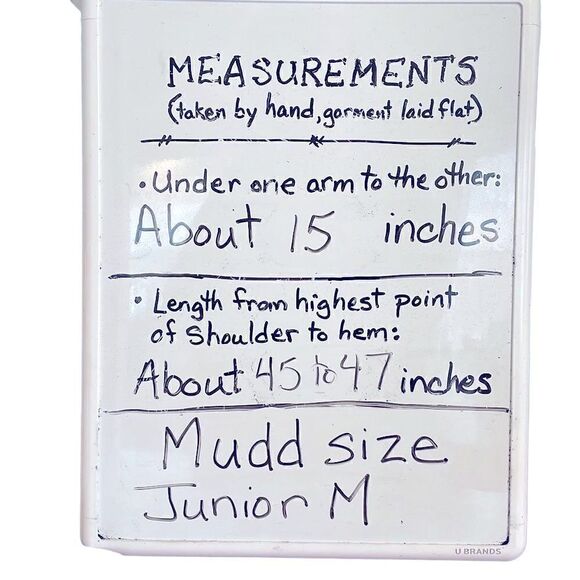 MEASUREMENTS
(taken by hand, garment laid flat)
• Under one arm to the other:
About 15 inches
• Length from highest point
of Shoulder to hem:
About 45 to 47 inches
Mudd size
Junior M
U BRANDS